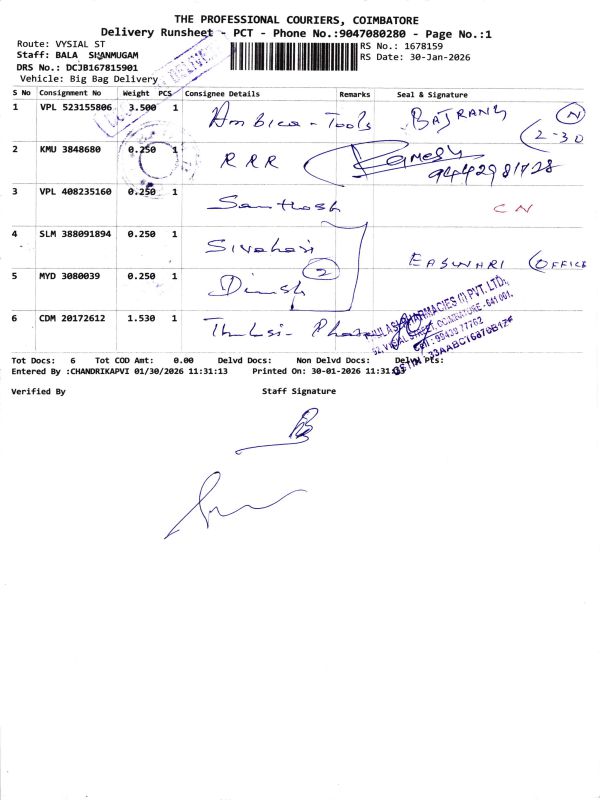 THE PROFESSIONAL COURIERS, COIMBATORE
Delivery Runsheet - PCT - Phone No.:9047080280 - Page No.:1
Route: VYSIAL ST
RS No.: 1678159
Staff: BALA SHANMUGAM
RS Date: 30-Jan-2026
DRS No.: DCJB167815901
Vehicle: Big Bag Delivery
S No Consignment No Weight PCS Consignee Details Remarks Seal & Signature
1 VPL 523155806 3.500 1 Ambica - Tools BAJRANG N
2-30
2 KMU 3848680 0.250 1 RRR Ramesh
9442981728
3 VPL 408235160 0.250 1 Santhosh CN
4 SLM 388091894 0.250 1 Sivahari
2 EASWARI (OFFICE
5 MYD 3080039 0.250 1 Dinesh
6 CDM 20172612 1.530 1 Thulasi - Pharma
THULASI PHARMACIES (I) PVT. LTD.,
VYSIAL STREET, COIMBATORE - 641 001.
Tot Docs: 6 Tot COD Amt: 0.00 Delvd Docs: Non Delvd Docs: Delvd Pts:
Entered By :CHANDRIKAPVI 01/30/2026 11:31:13 Printed On: 30-01-2026 11:31:13
Verified By Staff Signature